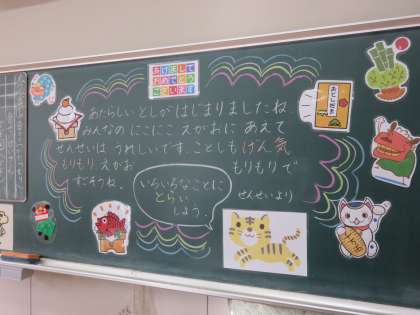 あけまして
おめでとう
ございます
あたらしい としが はじまりましたね
みんなの にこにこ えがおに あえて
せんせいは うれしいです。ことしも げん気
もりもり、えがお もりもりで
すごそうね。
いろいろなことに
とらい
しよう。
せんせいより
おとしだま